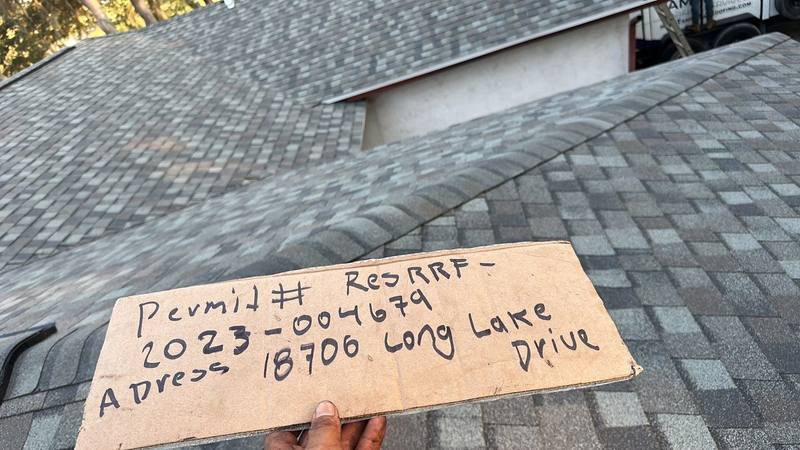 Permit# ResRRF-
2023-004679
Adress 18706 Long Lake
Drive